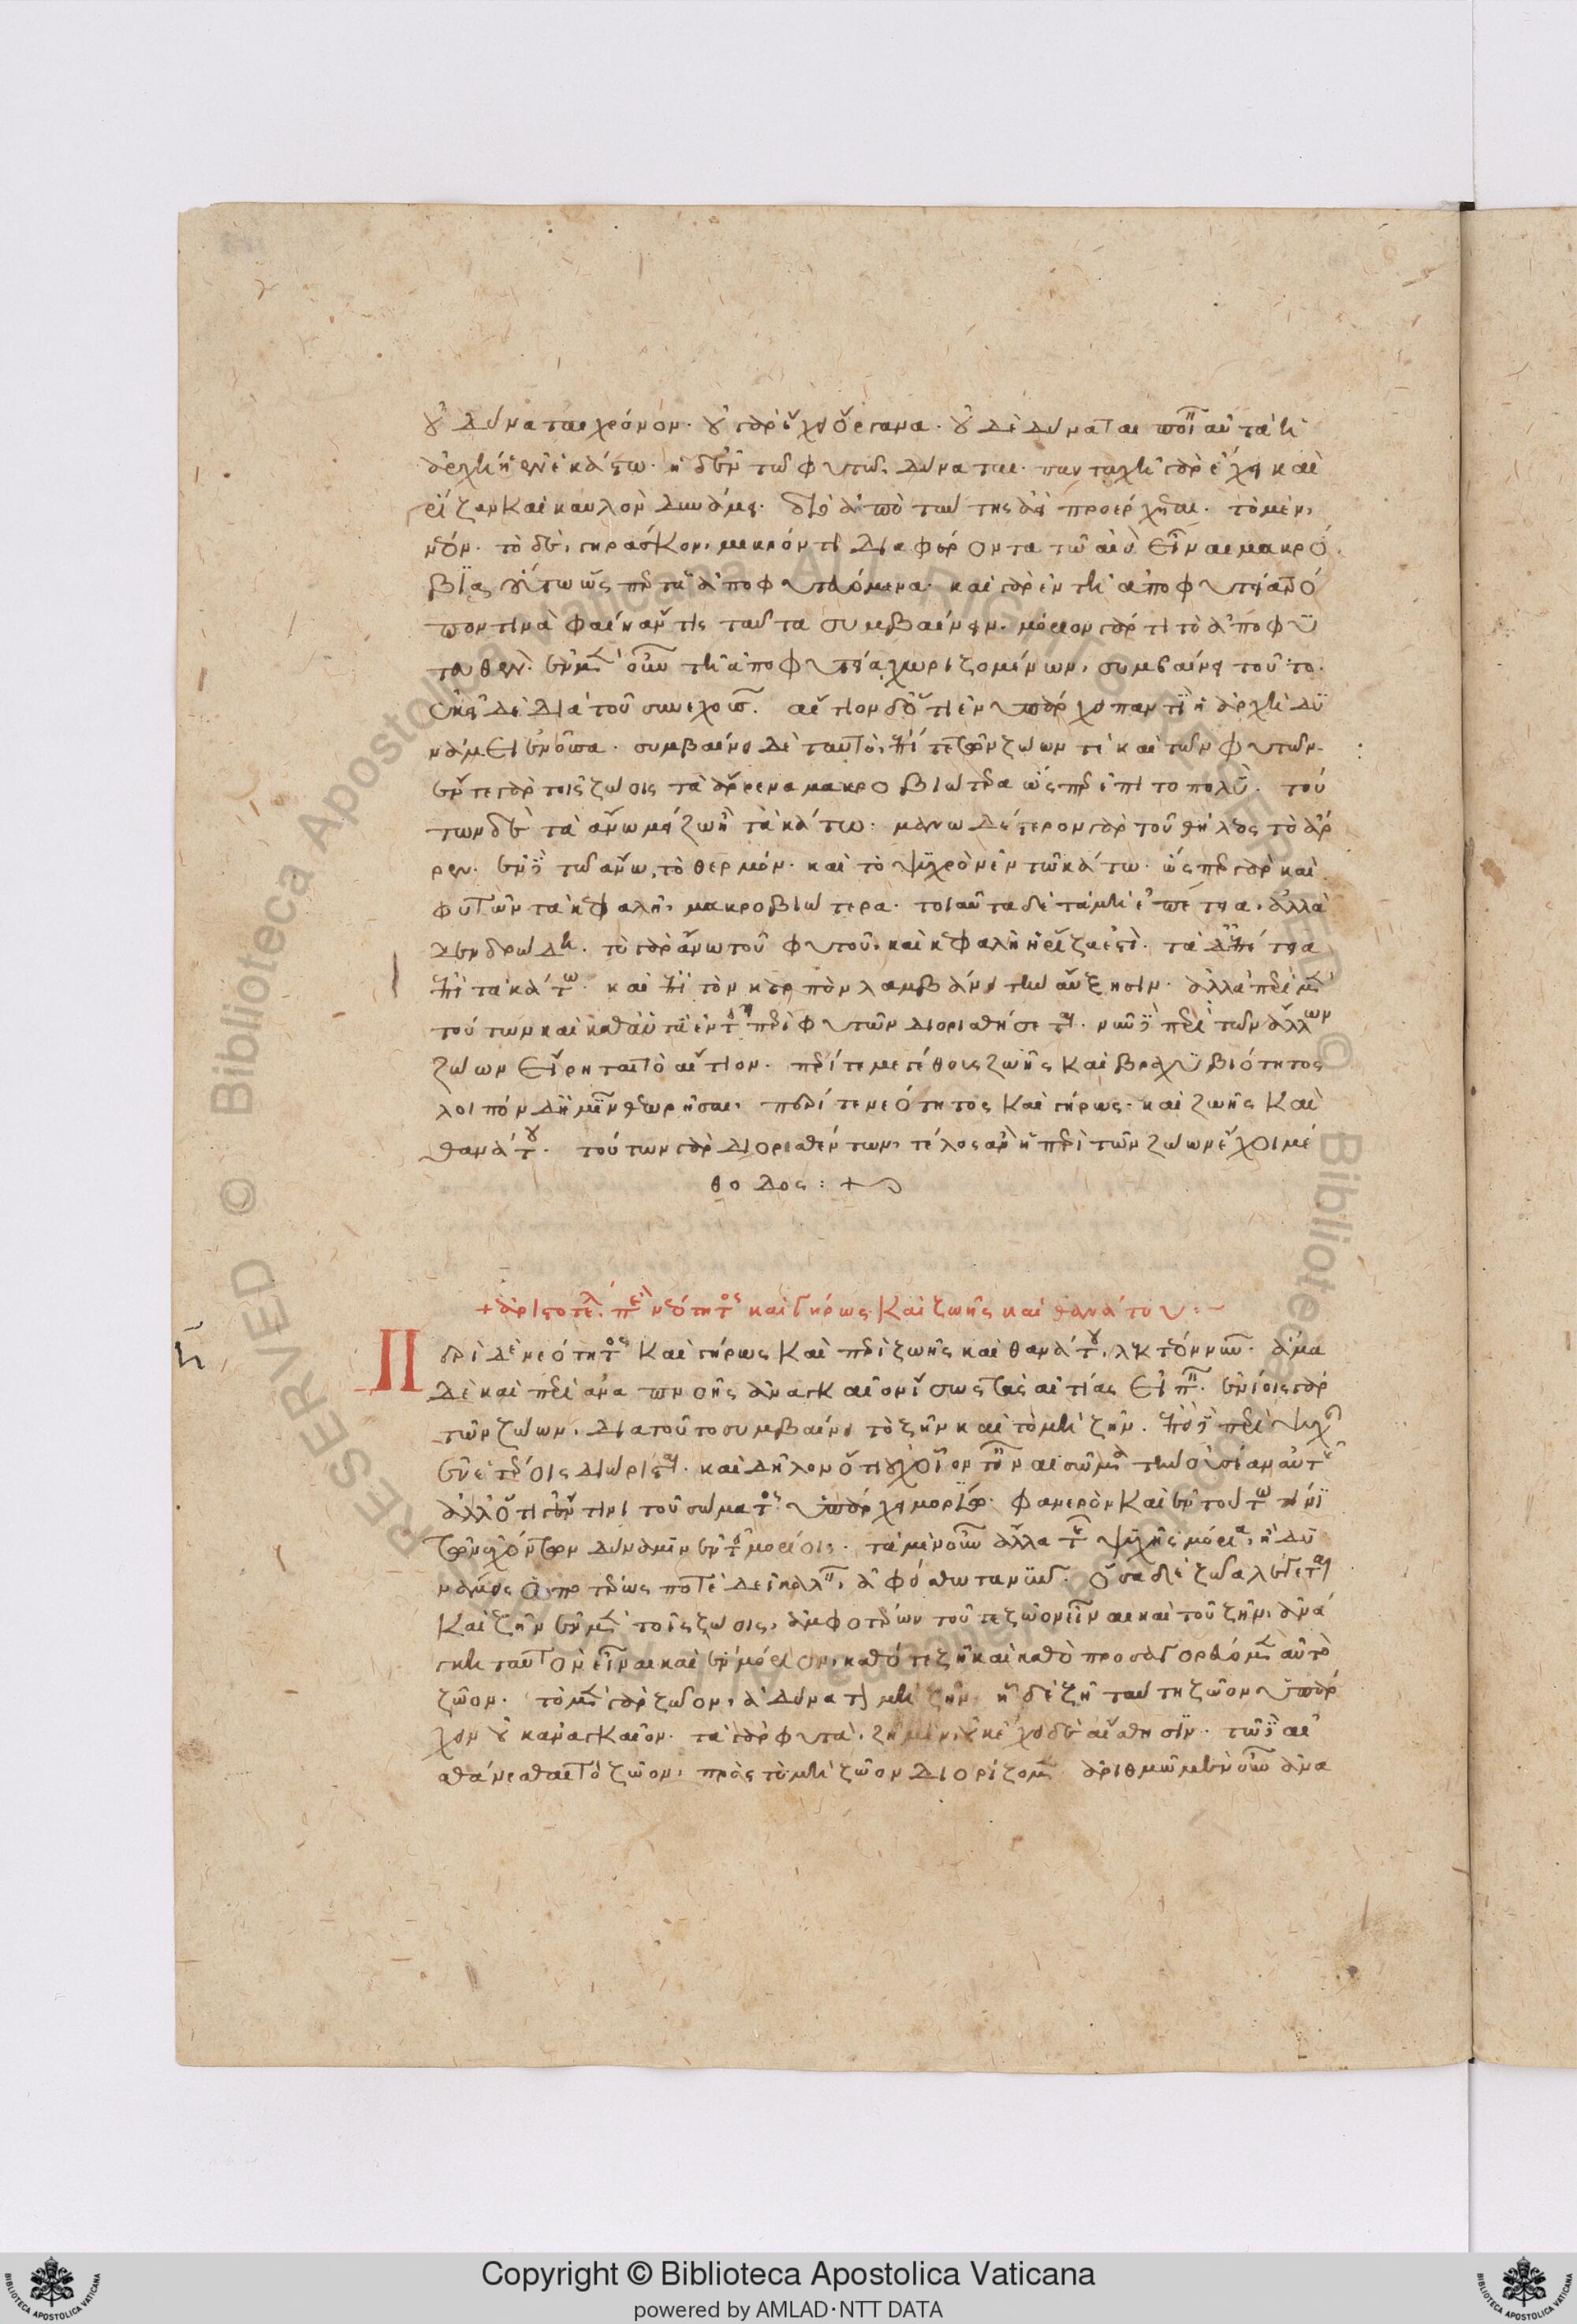 οὐ δύναται χρόνον· οὐ γὰρ ἔχει ὄργανα· οὐδὲ δύναται ποιῆσαι αὐτὰ ἡ
ἀρχὴ ἡ ἐν ἑκάστω· ἡ δ' ἐν τῶ φυτῶ, δύναται· πανταχῆ γὰρ ἔχει καὶ
ῥίζαν καὶ καυλὸν δυνάμει· διὸ ἀπὸ ταύτης ἀεὶ προέρχεται· τὸ μὲν,
νέον· τὸ δὲ, γηράσκον, μικρόν τι διαφέροντα τῶ αἰεὶ εἶναι μακρό
βια, οὕτω ὥσπερ τὰ ἀποφυτευόμενα· καὶ γὰρ ἐν τῆ ἀποφυτεία τρό
πον τινὰ φαίη ἄν τις ταυτὰ συμβαίνειν· μόριον γάρ τι τὸ ἀποφυ
τευθέν· ἐν μὲν οὖν τῆ ἀποφυτεία χωριζομένων, συμβαίνει τοῦτο·
ἐκεῖ δὲ διὰ τοῦ συνεχοῦς· αἴτιον δ' ὅτι ἐνυπάρχει παντὶ ἡ ἀρχὴ δυ
νάμει ἐνοῦσα· συμβαίνει δὲ ταυτὸ, ἐπί τε τῶν ζώων τε καὶ τῶν φυτῶν·
ἔν τε γὰρ τοῖς ζώοις τὰ ἄρρενα μακροβιώτερα ὡς ἐπὶ τὸ πολύ· τού
των δὲ τὰ ἄνω μείζω ἢ τὰ κάτω· νανωδέστερον γὰρ τοῦ θήλεος τὸ ἄρ
ρεν· ἐν δὲ τῶ ἄνω, τὸ θερμόν· καὶ τὸ ψυχρὸν ἐν τῶ κάτω· ὥσπερ γὰρ καὶ
φυτῶν τὰ κεφαλῆ, μακροβιώτερα· τοιαῦτα δὲ τὰ μὴ ἐπέτεια, ἀλλὰ
δενδρώδη· τὸ γὰρ ἄνω τοῦ φυτοῦ, καὶ κεφαλὴ ἡ ῥίζα ἐστί· τὰ δ' ἐπέτεια
ἐπὶ τὰ κάτω· καὶ ἐπὶ τὸν καρπὸν λαμβάνει τὴν αὔξησιν· ἀλλὰ περὶ μὲν
τούτων καὶ καθ' αὑτὰ ἐν τοῖς περὶ φυτῶν διορισθήσεται· νῦν δὲ περὶ τῶν ἄλλων
ζώων εἴρηται τὸ αἴτιον· περί τε μεγέθους ζωῆς καὶ βραχυβιότητος
λοιπὸν δ' ἡμῖν θεωρῆσαι, περί τε νεότητος καὶ γήρως· καὶ ζωῆς καὶ
θανάτου· τούτων γὰρ διορισθέντων, τέλος ἂν ἡ περὶ τῶν ζώων ἔχοι μέ
θοδος: +
+ ἀριστοτέλους περὶ νεότητος καὶ γήρως καὶ ζωῆς καὶ θανάτου:~
Περὶ δὲ νεότητος καὶ γήρως καὶ περὶ ζωῆς καὶ θανάτου, λεκτέον νῦν· ἅμα
δὲ καὶ περὶ ἀναπνοῆς ἀναγκαῖον ἴσως τὰς αἰτίας εἰπεῖν· ἐνίοις γὰρ
τῶν ζώων, διὰ τοῦτο συμβαίνει τὸ ζῆν καὶ τὸ μὴ ζῆν. ἐπεὶ δὲ περὶ ψυχῆς
ἐν ἑτέροις διώρισται· καὶ δῆλον ὅτι οὐχ οἷόν τ' εἶναι σῶμα τὴν οὐσίαν αὐτῆς
ἀλλ' ὅτι ἔν τινι τοῦ σώματος ὑπάρχει μορίω· φανερὸν καὶ ἐν τούτω τινὶ
τῶν ἐχόντων δύναμιν ἐν τοῖς μορίοις· τὰ μὲν οὖν ἄλλα τῆς ψυχῆς μόρια, ἢ δυ
νάμεις ὁποτέρως ποτὲ δεῖ καλεῖν, ἀφείσθω τανῦν. ὅσα δὲ ζῶα λέγεται
καὶ ζῆν ἐν μὲν τοῖς ζώοις, ἀμφοτέρων τοῦ τε ζῶον εἶναι καὶ τοῦ ζῆν, ἀνά
γκη ταυτὸν εἶναι καὶ ἓν μόριον, καθό τε ζῆ καὶ καθὸ προσαγορεύομεν αὐτὸ
ζῶον· τὸ μὲν γὰρ ζῶον, ἀδύνατον μὴ ζῆν· ἧ δὲ ζῆ ταύτη ζῶον ὑπάρ
χειν οὐκ ἀναγκαῖον· τὰ γὰρ φυτὰ, ζῆ μὲν, οὐκ ἔχει δὲ αἴσθησιν· τῶ δὲ αἰ
σθάνεσθαι τὸ ζῶον, πρὸς τὸ μὴ ζῶον διορίζομεν ἀριθμῶ μὲν οὖν ἀνα